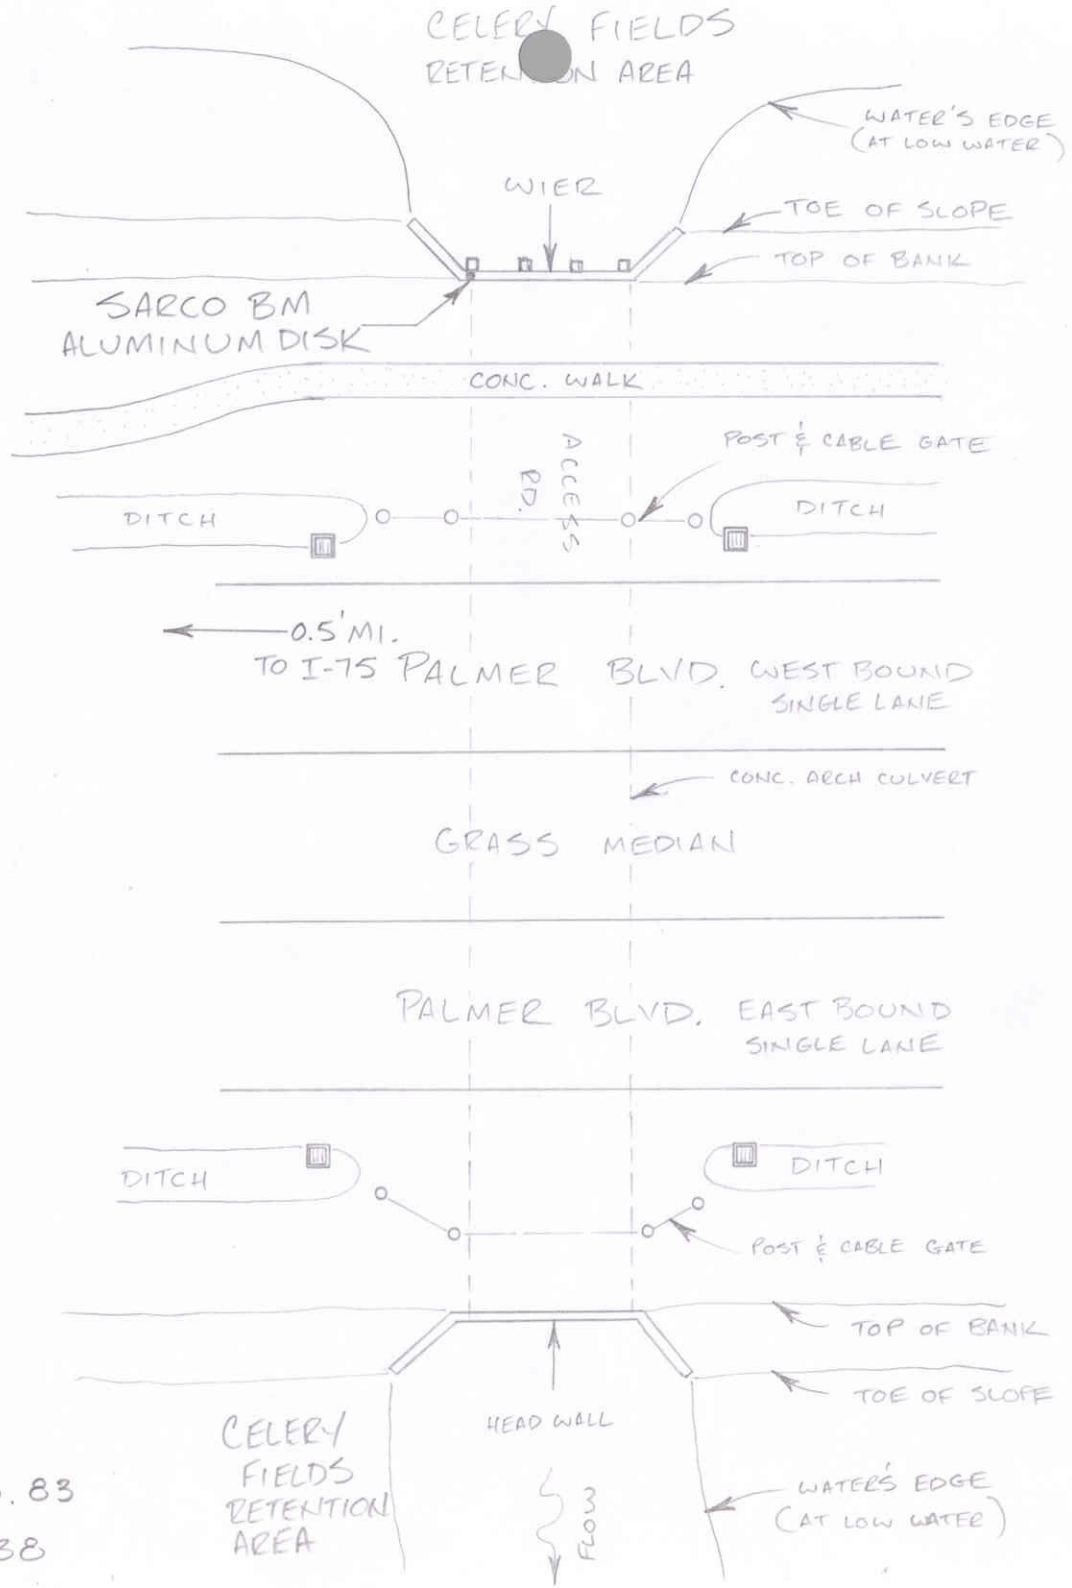 CELERY FIELDS
RETENTION AREA
WATER'S EDGE
(AT LOW WATER)
WIER
TOE OF SLOPE
TOP OF BANK
SARCO BM
ALUMINUM DISK
CONC. WALK
POST & CABLE GATE
ACCESS
RD.
DITCH
DITCH
0.5' MI.
TO I-75
PALMER BLVD. WEST BOUND
SINGLE LANE
CONC. ARCH CULVERT
GRASS MEDIAN
PALMER BLVD. EAST BOUND
SINGLE LANE
DITCH
DITCH
POST & CABLE GATE
TOP OF BANK
TOE OF SLOPE
HEAD WALL
CELERY
FIELDS
RETENTION
AREA
FLOW
WATER'S EDGE
(AT LOW WATER)
. 83
38